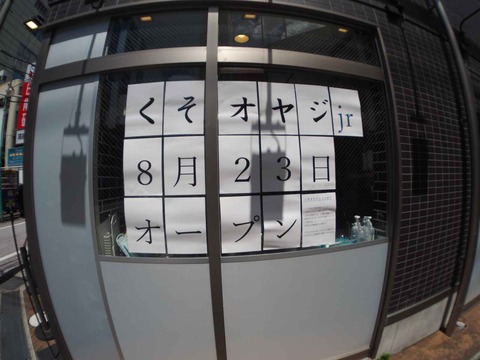 くそオヤジjr
8月23日
オープン